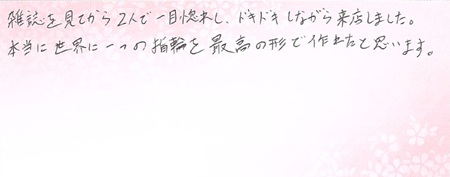 雑誌を見てから2人で一目惚れし、ドキドキしながら来店しました。
本当に世界に一つの指輪を最高の形で作れたと思います。